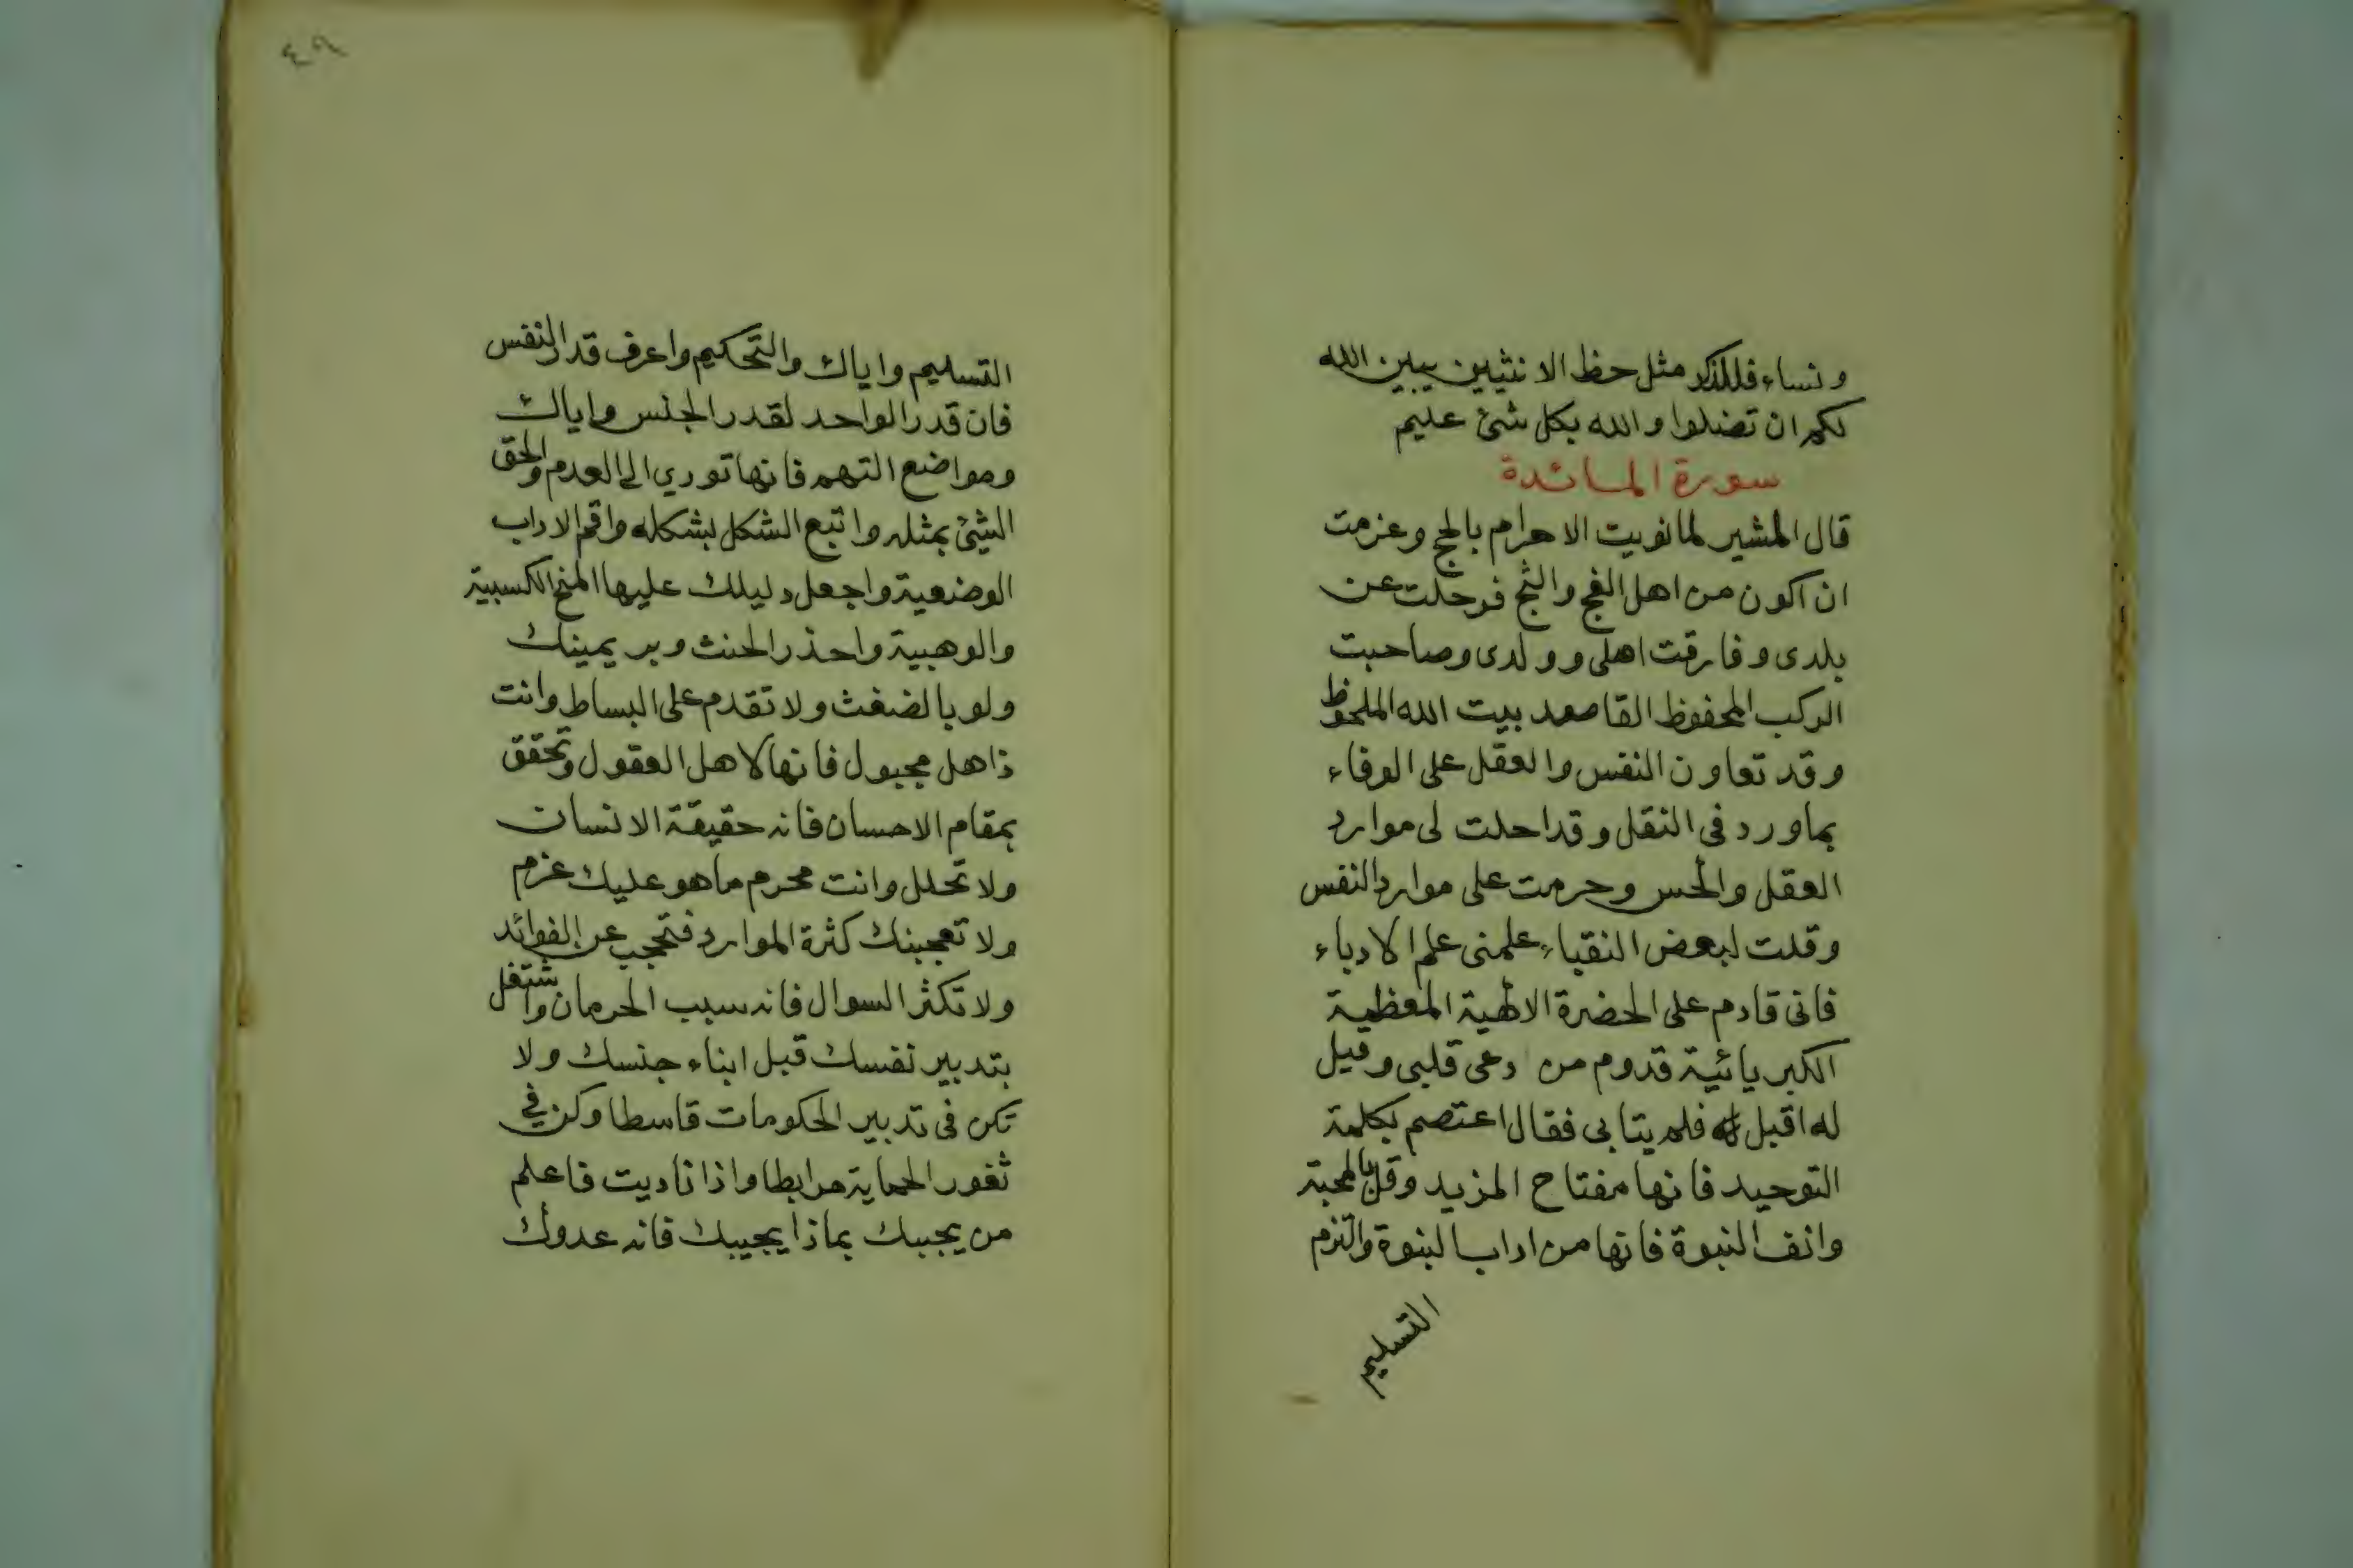 ونساء فللذكر مثل حظ الانثيين يبين الله
لكم ان تضلوا والله بكل شئ عليم
سورة المائدة
قال المشير لما نويت الاحرام بالحج وعزمت
ان اكون من اهل العج والثج فرحلت عن
بلدى وفارقت اهلى وولدى وصاحبت
الركب المحفوظ القاصد بيت الله الملحوظ
وقد تعاون النفس والعقل على الوفاء
بما ورد فى النقل وقد احلت لى موارد
العقل والحس وحرمت على موارد النفس
وقلت لبعض النقباء علمنى علم الادباء
فانى قادم على الحضرة الالهية المعظمية
الكبريائية قدوم من دعى قلبى وقيل
له اقبل فلم يتابى فقال اعتصم بكلمة
التوحيد فانها مفتاح المزيد وقل بالمحبة
وانف النبوة فانها من اداب البنوة والتزم
التسليم
٤٩
التسليم واياك والتحكيم واعرف قدر النفس
فان قدر الواحد لقدر الجنس واياك
ومواضع التهم فانها تورى الى العدم والحق
الشئ بمثله واتبع الشكل بشكله واقم الاداب
الوضعية واجعل دليلك عليها المنح الكسبية
والوهبية واحذر الحنث وبر يمينك
ولو بالضغث ولا تقدم على البساط وانت
ذاهل مجبول فانها لاهل العقول وتحقق
بمقام الاحسان فانه حقيقة الانسان
ولا تحلل وانت محرم ما هو عليك عزم
ولا تعجبنك كثرة الموارد فتحجب عن الفوائد
ولا تكثر السوال فانه سبب الحرمان واشتغل
بتدبير نفسك قبل ابناء جنسك ولا
تكن فى تدبير الحكومات قاسطا وكن فى
ثغور الحماية مرابطا واذا ناديت فاعلم
من يجيبك بماذا يجيبك فانه عدوك